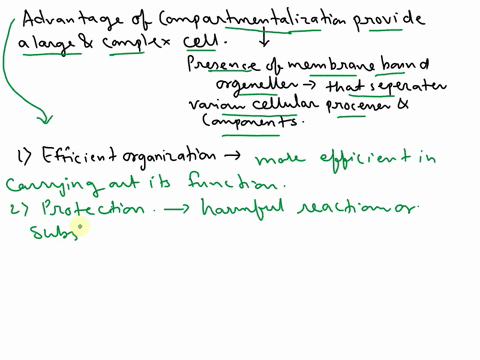 Advantage of Compartmentalization provide
a large & complex cell.
Presence of membrane bound
organelles → that seperates
various cellular processes &
Components.
1) Efficient organization → more efficient in
carrying out its function.
2) Protection. → harmful reaction or
Subs